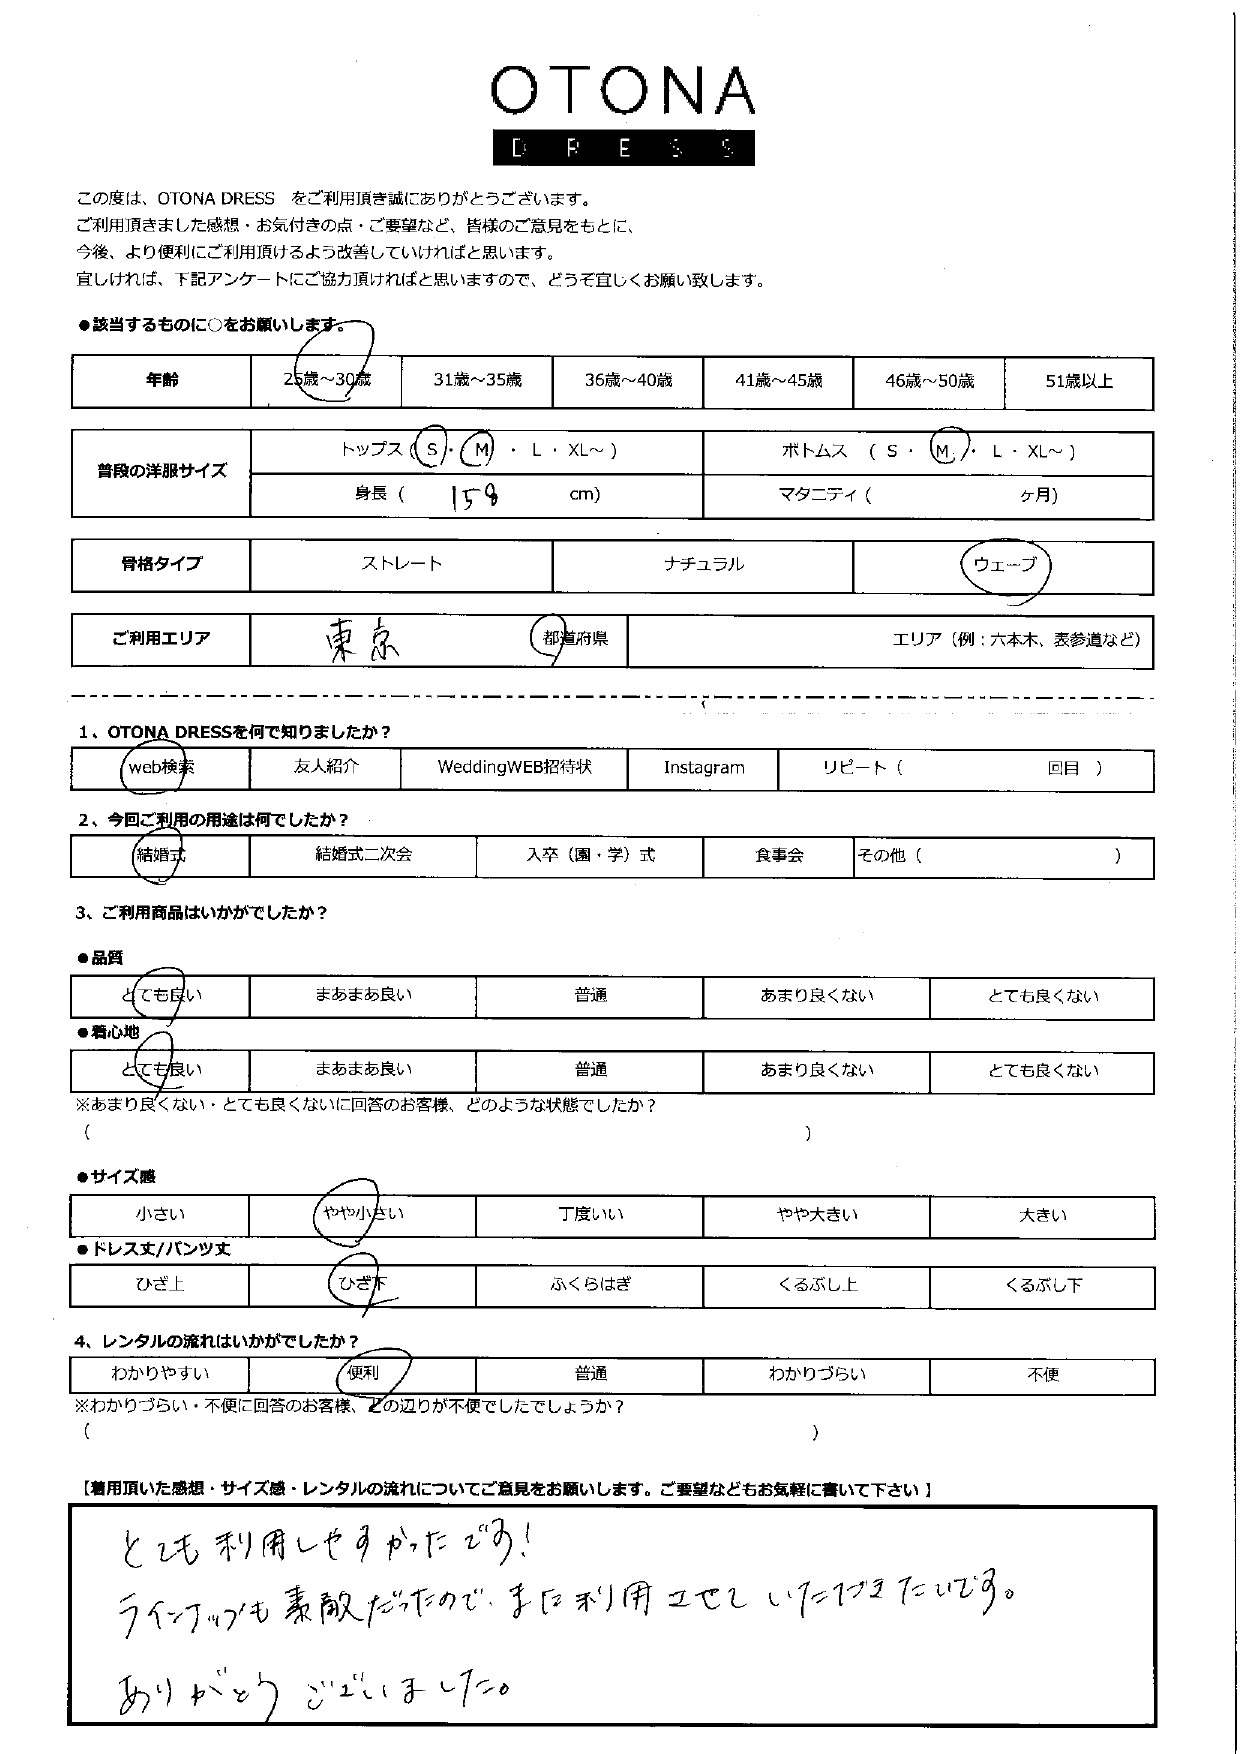 OTONA
DRESS
この度は、OTONA DRESS　をご利用頂き誠にありがとうございます。
ご利用頂きました感想・お気付きの点・ご要望など、皆様のご意見をもとに、
今後、より便利にご利用頂けるよう改善していければと思います。
宜しければ、下記アンケートにご協力頂ければと思いますので、どうぞ宜しくお願い致します。
●該当するものに○をお願いします。
年齢 25歳～30歳 31歳～35歳 36歳～40歳 41歳～45歳 46歳～50歳 51歳以上
普段の洋服サイズ
トップス（ S ・ M ・ L ・ XL～ ） ボトムス （ S ・ M ・ L ・ XL～ ）
身長（ 158 cm） マタニティ（ ヶ月）
骨格タイプ ストレート ナチュラル ウェーブ
ご利用エリア 東京 都道府県 エリア（例：六本木、表参道など）
1、OTONA DRESSを何で知りましたか？
web検索 友人紹介 WeddingWEB招待状 Instagram リピート（ 回目 ）
2、今回ご利用の用途は何でしたか？
結婚式 結婚式二次会 入卒（園・学）式 食事会 その他（ ）
3、ご利用商品はいかがでしたか？
●品質
とても良い まあまあ良い 普通 あまり良くない とても良くない
●着心地
とても良い まあまあ良い 普通 あまり良くない とても良くない
※あまり良くない・とても良くないに回答のお客様、どのような状態でしたか？
（ ）
●サイズ感
小さい やや小さい 丁度いい やや大きい 大きい
●ドレス丈/パンツ丈
ひざ上 ひざ下 ふくらはぎ くるぶし上 くるぶし下
4、レンタルの流れはいかがでしたか？
わかりやすい 便利 普通 わかりづらい 不便
※わかりづらい・不便に回答のお客様、どの辺りが不便でしたでしょうか？
（ ）
【着用頂いた感想・サイズ感・レンタルの流れについてご意見をお願いします。ご要望などもお気軽に書いて下さい】
とても利用しやすかったです！
ラインナップも素敵だったので、また利用させていただきたいです。
ありがとうございました。